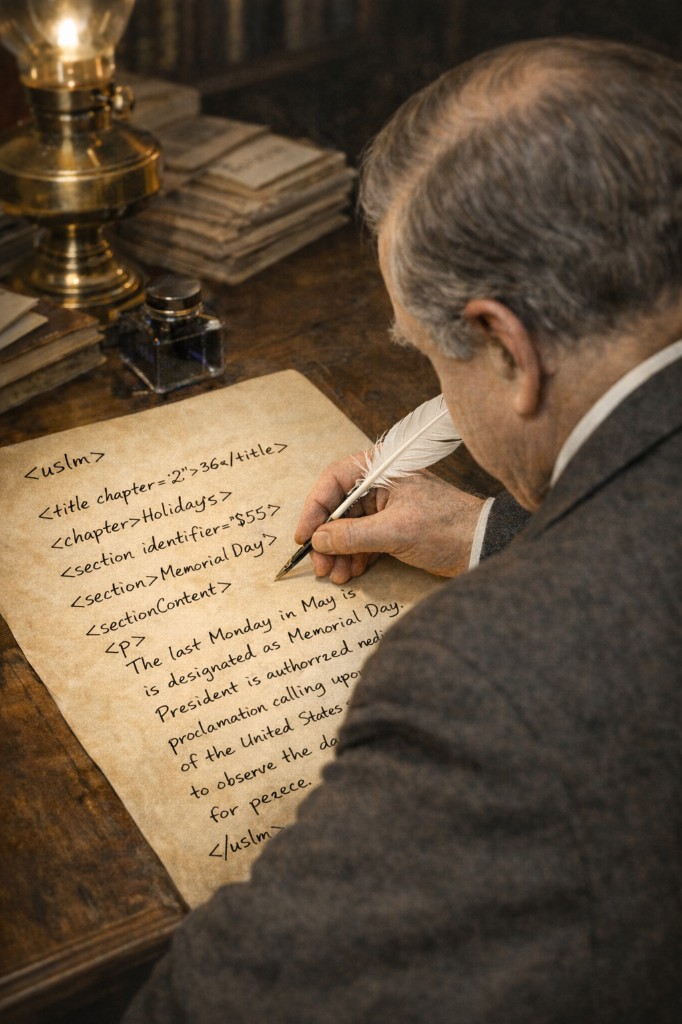 <uslm>
<title chapter="2">36</title>
<chapter>Holiday's>
<section identifier="$55">
<section>Memorial Day'>
<sectionContent>
<p>
The last Monday in May is
is designated as Memorial Day.
President is authorrzed
proclamation calling
of the United States
to observe the
for pezece.
</uslm>